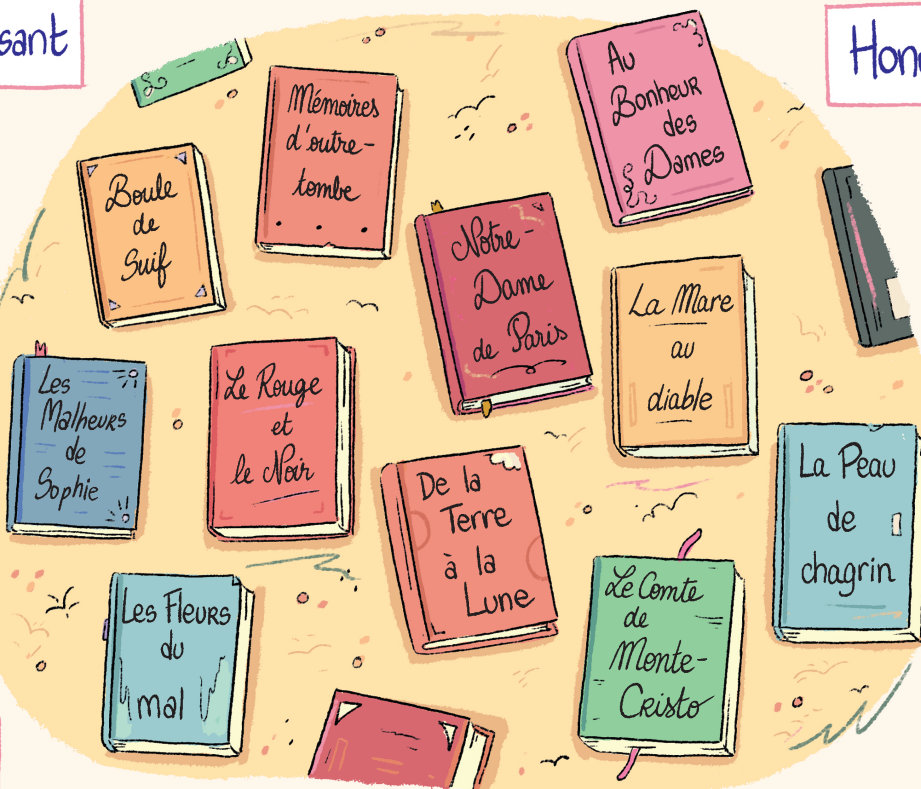 sant
Hono
Mémoires
d'outre-
tombe
Au
Bonheur
des
Dames
Boule
de
Suif
Notre-
Dame
de Paris
La Mare
au
diable
Les
Malheurs
de
Sophie
Le Rouge
et
le Noir
De la
Terre
à la
Lune
La Peau
de
chagrin
Les Fleurs
du
mal
Le Comte
de
Monte-
Cristo